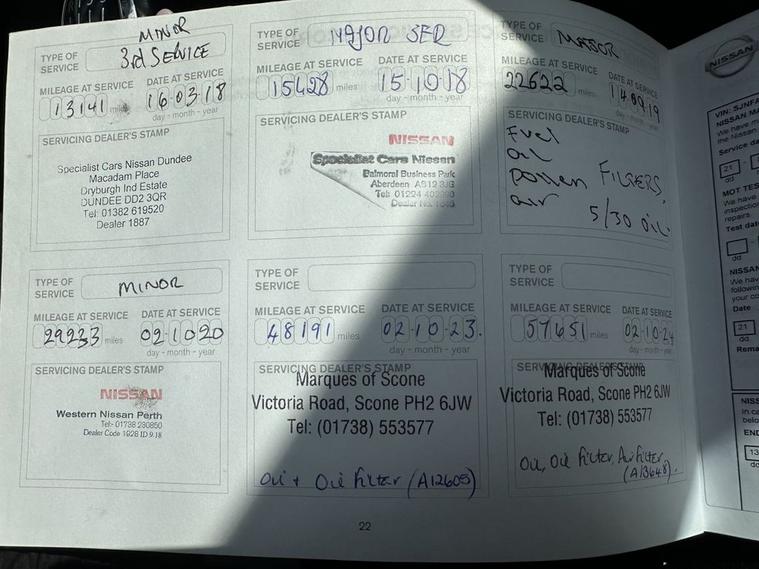 TYPE OF SERVICE
MINOR
3rd SERVICE
MILEAGE AT SERVICE
DATE AT SERVICE
13141 miles
16 03 18
day - month - year
SERVICING DEALER'S STAMP
Specialist Cars Nissan Dundee
Macadam Place
Dryburgh Ind Estate
DUNDEE DD2 3QR
Tel: 01382 619520
Dealer 1887
TYPE OF SERVICE
MAJOR SER
MILEAGE AT SERVICE
DATE AT SERVICE
15428 miles
15-10-18
day - month - year
SERVICING DEALER'S STAMP
NISSAN
Specialist Cars Nissan
Balmoral Business Park
Aberdeen AB12 3JG
Tel: 01224
Dealer No.
TYPE OF SERVICE
MILEAGE AT SERVICE
DATE AT SERVICE
22622 miles
day - month - year
SERVICING DEALER'S STAMP
Fuel
oil
pollen FILTERS,
air 5/30 OIL
TYPE OF SERVICE
MINOR
MILEAGE AT SERVICE
DATE AT SERVICE
29233 miles
02-10 20
day - month - year
SERVICING DEALER'S STAMP
NISSAN
Western Nissan Perth
Tel:- 01738 230850
Dealer Code 1928 ID 9.18
TYPE OF SERVICE
MILEAGE AT SERVICE
DATE AT SERVICE
48191 miles
02-10-23.
day - month - year
SERVICING DEALER'S STAMP
Marques of Scone
Victoria Road, Scone PH2 6JW
Tel: (01738) 553577
Oil + Oil Filter (A12605)
TYPE OF SERVICE
MILEAGE AT SERVICE
DATE AT SERVICE
57651 miles
02-10-24
day - month - year
SERVICING DEALER'S STAMP
Marques of Scone
Victoria Road, Scone PH2 6JW
Tel: (01738) 553577
Oil, Oil Filter, Air Filter,
(A13648).
22
NISSAN
VIN: SJNFA
NISSAN MA
We have
the Nissan
Service da
21
dd
MOT TES
We have
inspection
repairs.
Test dat
dd
NISSAN
We have
followin
your co
Date
21
dd
Rema
NISS
In ca
belo
END
13
dd